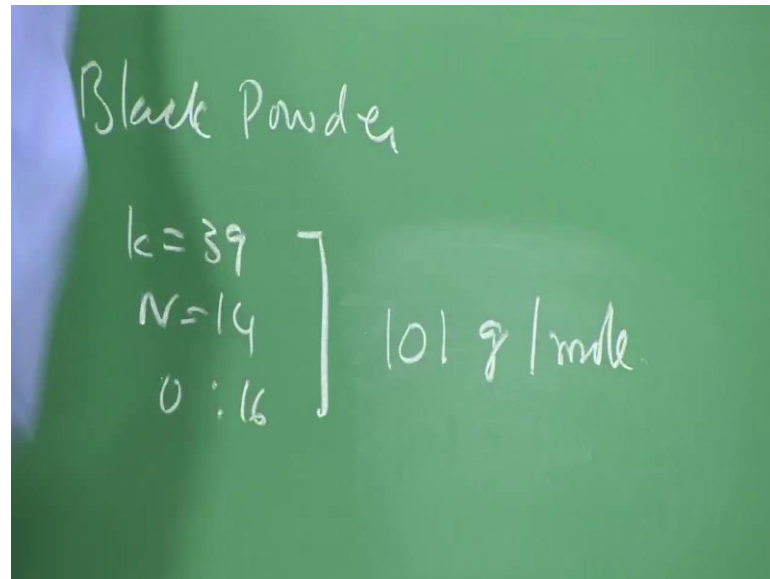 Black Powder
k=39
N=14
O:16
101 g/mole